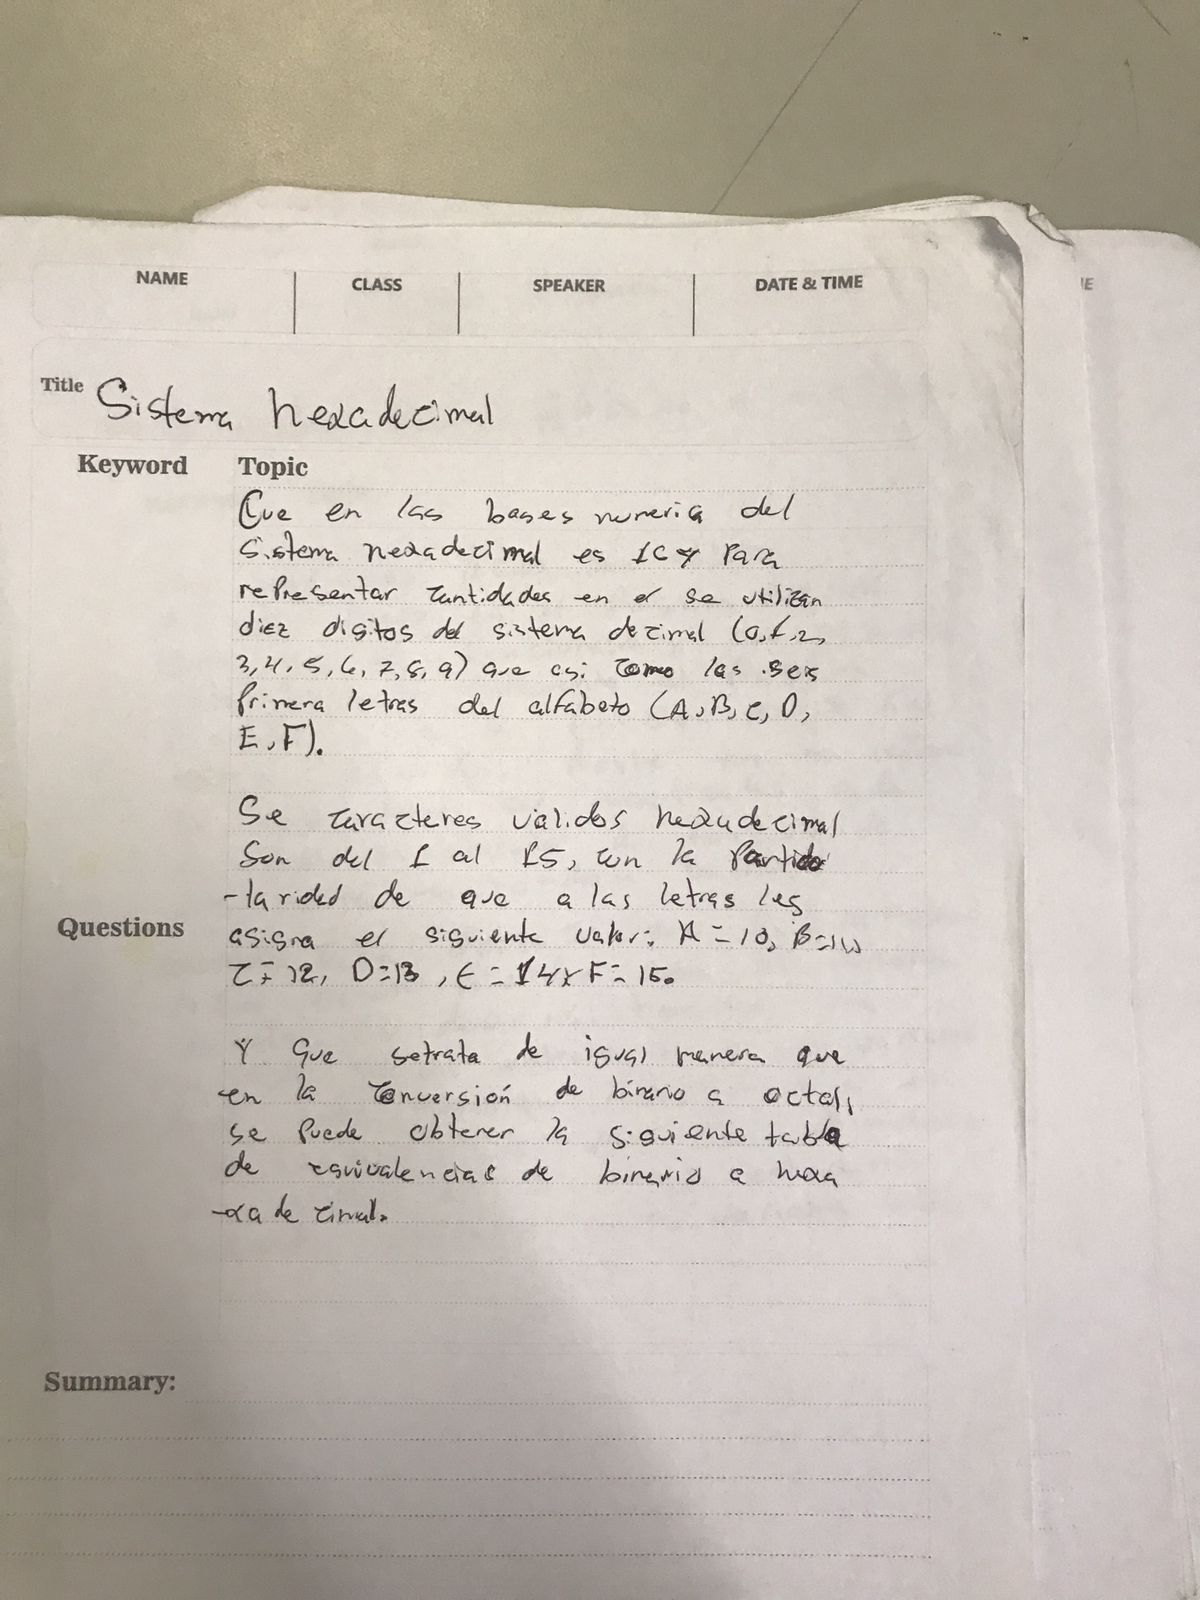 NAME CLASS SPEAKER DATE & TIME
Title Sistema hexadecimal
Keyword Topic
Que en las bases numeria del
Sistema hexadecimal es 16 y para
representar cantidades en el se utilizan
diez digitos del sistema decimal (0,1,2,
3,4,5,6,7,8,9) que asi como las seis
Primera letras del alfabeto (A,B,C,D,
E,F).
Se caracteres validos hexadecimal
Son del 1 al 15, con la Particu
-laridad de que a las letras les
Questions
asigna el siguiente valor: A=10, B=11,
C=12, D=13, E=14 y F=15.
Y que setrata de igual manera que
en la conversión de binario a octal,
se puede obtener la siguiente tabla
de equivalencias de binario a hexa
-xa de cimal.
Summary: